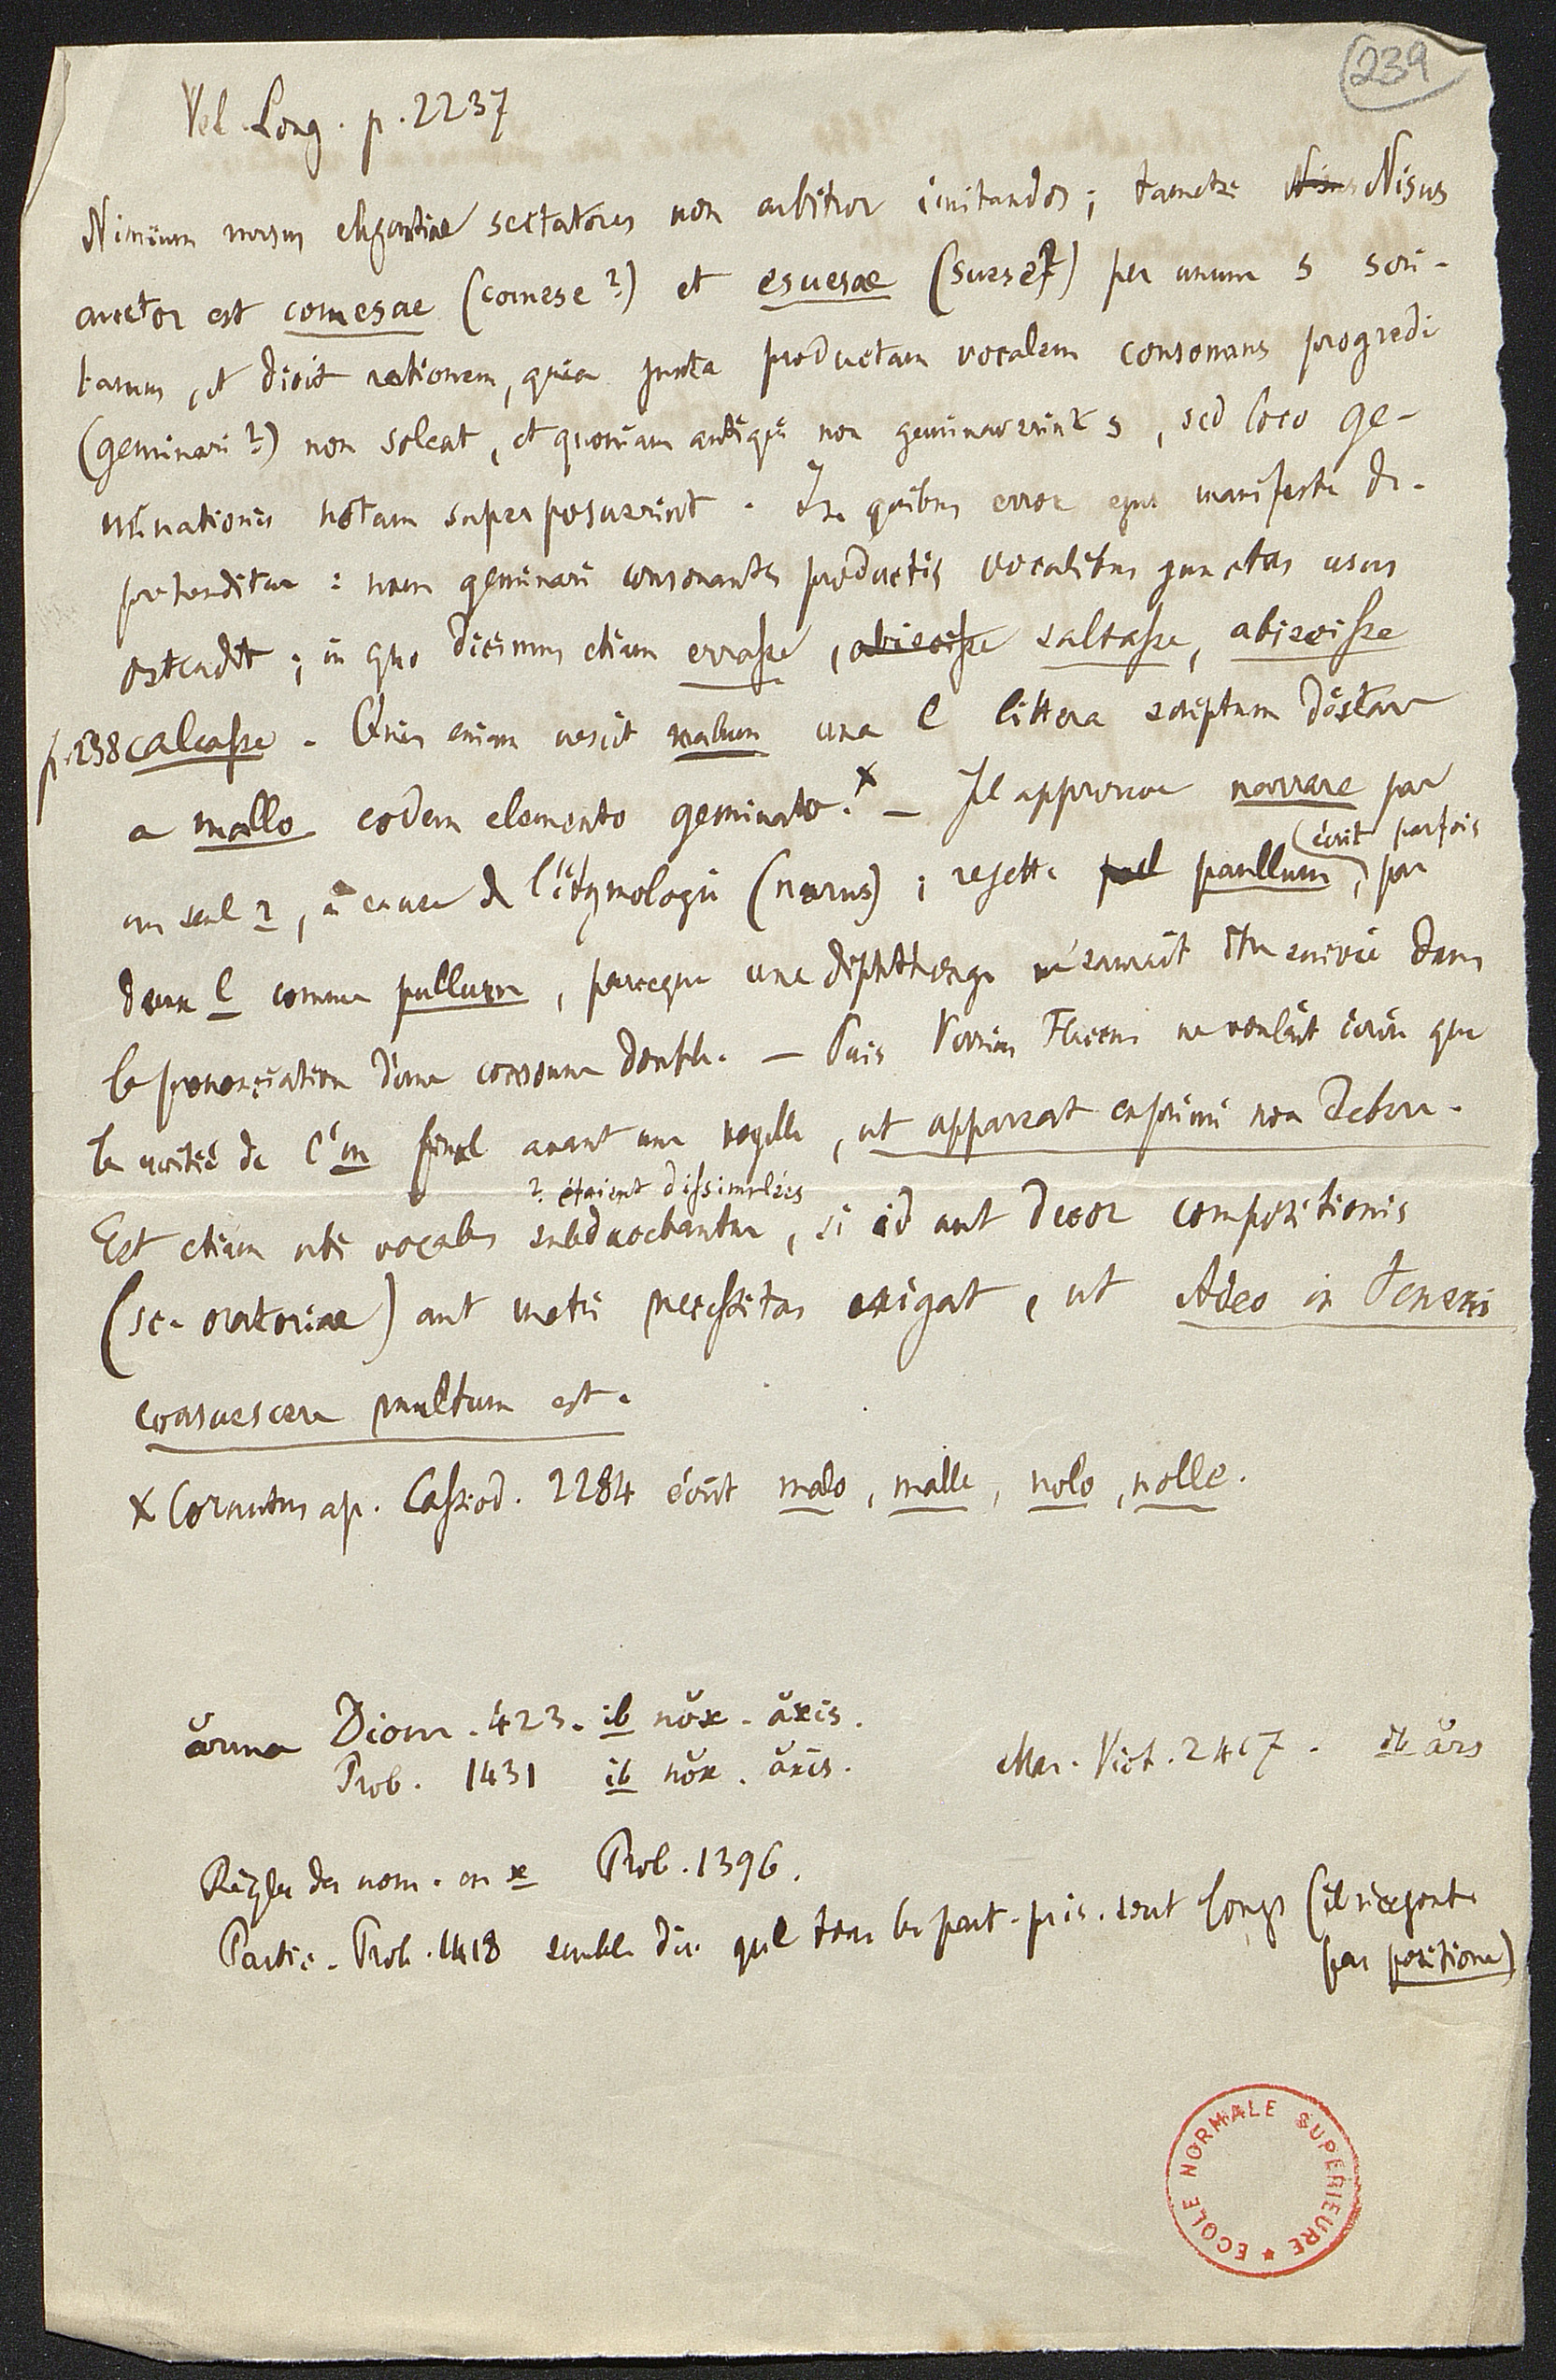 239
Vel. Long. p. 2237
Nimium rursus elegantiae sectatores non arbitror imitandos; tametsi Nisus Nisus
auctor est comesae (comese?) et esuesae (suese?) per unum s scri-
tarum, et dicit rationem, quia juxta productam vocalem consonans progredi
(geminari?) non soleat, et quoniam antiqui non geminaverint s, sed loco ge-
minationis notam superposuerint. In quibus error ejus manifeste de-
prehenditur: nam geminari consonantes productis vocalibus junctas usus
ostendit; in quo dicimus etiam errasse, abiscisse saltasse, abiscisse
p. 238 calcasse. Quis enim nescit malum una l littera scriptum distare
a mallo eodem elemento geminato.x — Il approuve narrare par
un seul r, à cause de l'étymologie (narus); rejette pul paullum, (écrit parfois par
deux l comme pullum, parceque une diphthongue ne saurait être suivie dans
la prononciation d'une consonne double. — Puis Verrius Flaccus ne voulait écrire que
la moitié de l'm final avant une voyelle, ut appareat exprimi non debere.
? étaient dissimulées
Est etiam ubi vocales subducebantur, si id aut decor compositionis
(sc. oratoriae) aut metri necessitas exigat, ut Adeo in teneris
consuescere multum est.
x Cornutus ap. Cassiod. 2284 écrit malo, malle, nolo, nolle.
ărma Diom. 423. ib nŏx. ăxis.
Prob. 1431 ib nŏx. ăxis. Mar. Vict. 2467. ib ărs
Règles des nom. en x Prob. 1396.
Partic. Prob. 1418 semble dire que tous les part. prés. sont longs
par positione)
ECOLE NORMALE SUPERIEURE